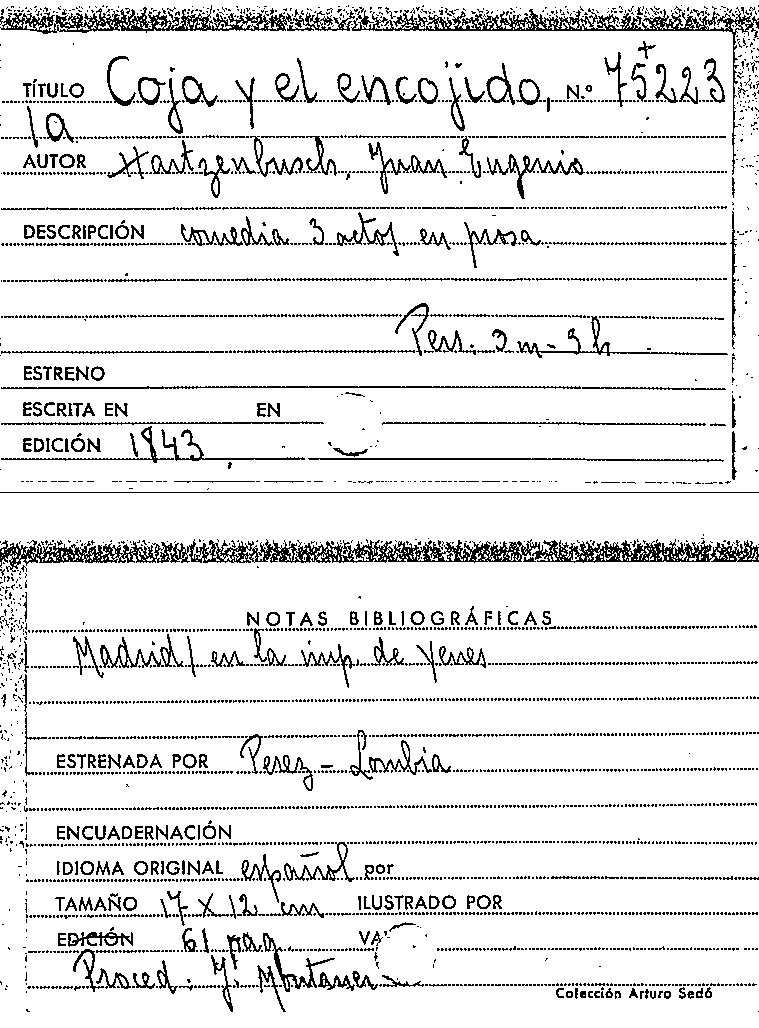 TÍTULO Coja y el encojido, N.º 75223
la
AUTOR Hartzenbusch, Juan Eugenio
DESCRIPCIÓN comedia 3 actos en prosa
Pers. 3 m - 5 h
ESTRENO
ESCRITA EN EN
EDICIÓN 1843
NOTAS BIBLIOGRÁFICAS
Madrid / en la imp. de Yenes
ESTRENADA POR Perez - Lombia
ENCUADERNACIÓN
IDIOMA ORIGINAL español por
TAMAÑO 17 X 12 cm ILUSTRADO POR
EDICIÓN 61 pag. VA
Proced: J. Montaner
Colección Arturo Sedó